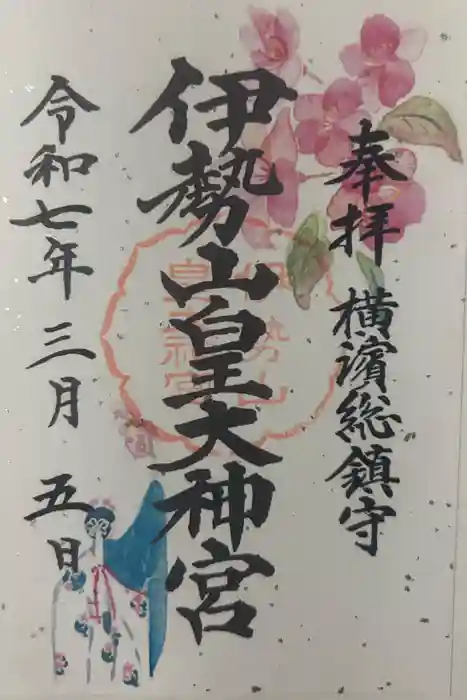 奉拝 横濱総鎮守
伊勢山皇大神宮
伊勢山
皇大神宮
令和七年 三月 五日